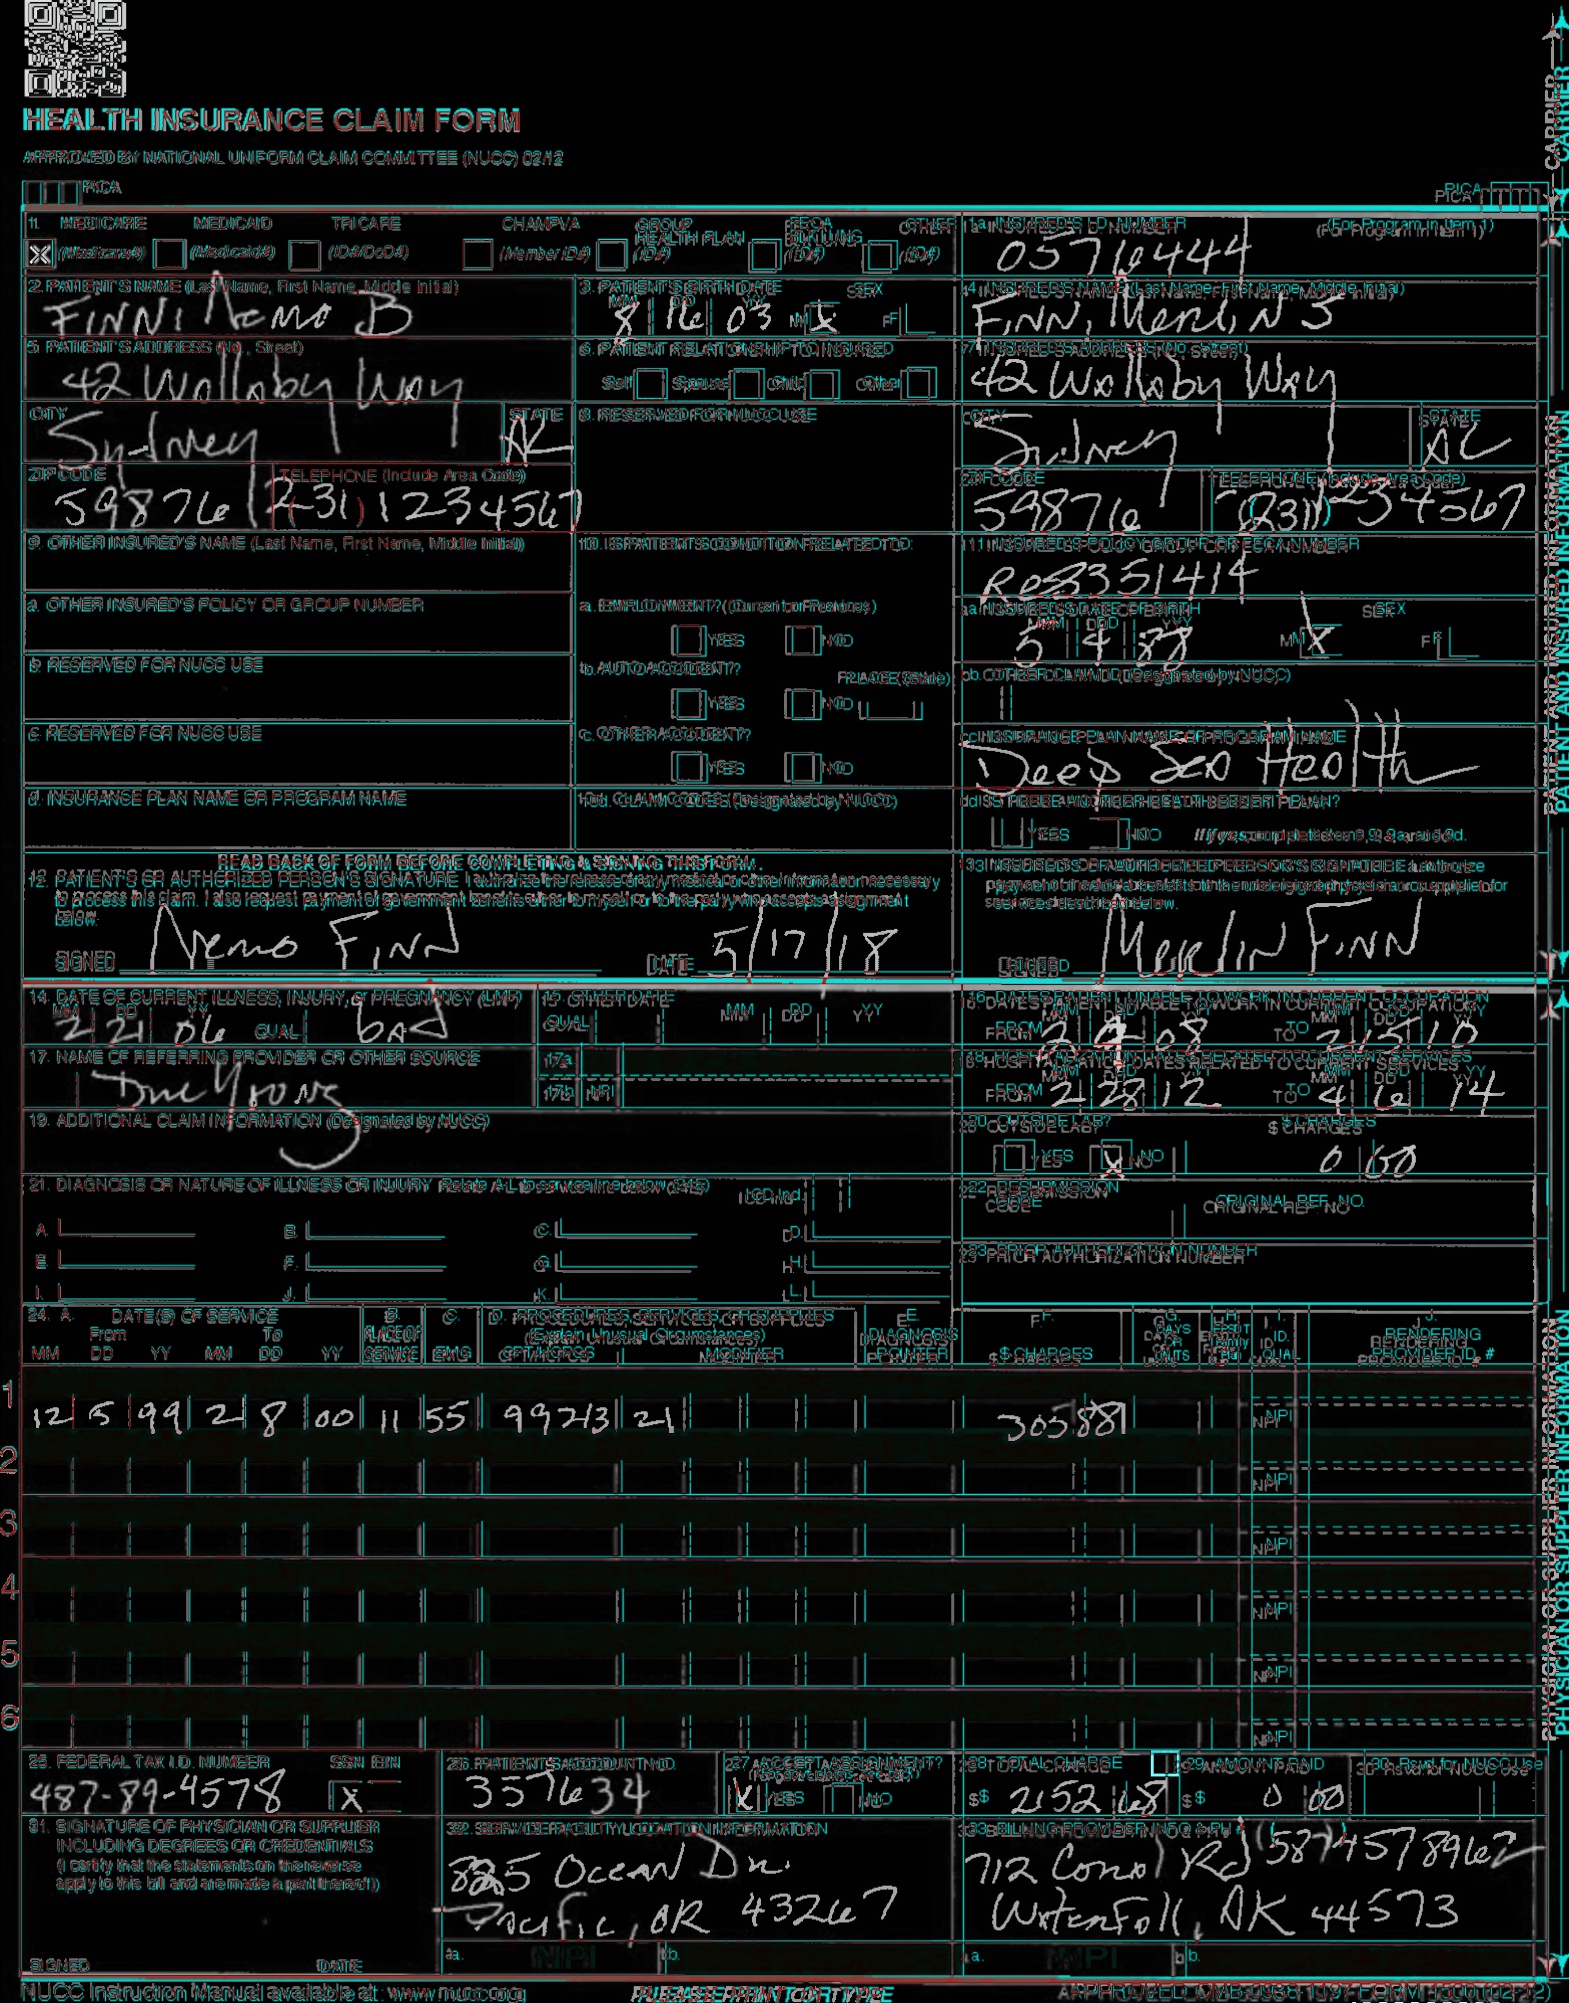 HEALTH INSURANCE CLAIM FORM
APPROVED BY NATIONAL UNIFORM CLAIM COMMITTEE (NUCC) 02/12
PICA
PICA
CARRIER
1. MEDICARE MEDICAID TRICARE CHAMPVA GROUP HEALTH PLAN FECA BLK LUNG OTHER
X (Medicare#) (Medicaid#) (ID#/DoD#) (Member ID#) (ID#) (ID#) (ID#)
1a. INSURED'S I.D. NUMBER (For Program in Item 1)
05716444
2. PATIENT'S NAME (Last Name, First Name, Middle Initial)
FINN, Nemo B
3. PATIENT'S BIRTH DATE SEX
MM DD YY
8 16 03 M X F
4. INSURED'S NAME (Last Name, First Name, Middle Initial)
FINN, Merlin S
5. PATIENT'S ADDRESS (No., Street)
42 Wallaby Way
6. PATIENT RELATIONSHIP TO INSURED
Self Spouse Child Other
7. INSURED'S ADDRESS (No., Street)
42 Wallaby Way
CITY STATE
Sydney AK
8. RESERVED FOR NUCC USE
CITY STATE
Sydney
ZIP CODE TELEPHONE (Include Area Code)
59876 (231) 1234567
ZIP CODE TELEPHONE (Include Area Code)
59876 (231) 1234567
9. OTHER INSURED'S NAME (Last Name, First Name, Middle Initial)
10. IS PATIENT'S CONDITION RELATED TO:
11. INSURED'S POLICY GROUP OR FECA NUMBER
a. OTHER INSURED'S POLICY OR GROUP NUMBER
a. EMPLOYMENT? (Current or Previous)
YES NO
a. INSURED'S DATE OF BIRTH SEX
MM DD YY
5 4 88 M X F
b. RESERVED FOR NUCC USE
b. AUTO ACCIDENT? PLACE (State)
YES NO
b. OTHER CLAIM ID (Designated by NUCC)
c. RESERVED FOR NUCC USE
c. OTHER ACCIDENT?
YES NO
c. INSURANCE PLAN NAME OR PROGRAM NAME
Deep Sea Health
d. INSURANCE PLAN NAME OR PROGRAM NAME
10d. CLAIM CODES (Designated by NUCC)
d. IS THERE ANOTHER HEALTH BENEFIT PLAN?
YES NO If yes, complete items 9, 9a, and 9d.
READ BACK OF FORM BEFORE COMPLETING & SIGNING THIS FORM.
12. PATIENT'S OR AUTHORIZED PERSON'S SIGNATURE I authorize the release of any medical or other information necessary
to process this claim. I also request payment of government benefits either to myself or to the party who accepts assignment
below.
SIGNED Nemo Finn DATE 5/17/18
13. INSURED'S OR AUTHORIZED PERSON'S SIGNATURE I authorize
payment of medical benefits to the undersigned physician or supplier for
services described below.
SIGNED Merlin Finn
PATIENT AND INSURED INFORMATION
14. DATE OF CURRENT ILLNESS, INJURY, or PREGNANCY (LMP)
MM DD YY
2 21 06 QUAL. bad
15. OTHER DATE
QUAL. MM DD YY
16. DATES PATIENT UNABLE TO WORK IN CURRENT OCCUPATION
MM DD YY MM DD YY
FROM 2 08 TO 2 15 10
17. NAME OF REFERRING PROVIDER OR OTHER SOURCE
17a.
17b. NPI
18. HOSPITALIZATION DATES RELATED TO CURRENT SERVICES
MM DD YY MM DD YY
FROM 2 28 12 TO 4 6 14
19. ADDITIONAL CLAIM INFORMATION (Designated by NUCC)
20. OUTSIDE LAB? $ CHARGES
YES X NO 0 00
21. DIAGNOSIS OR NATURE OF ILLNESS OR INJURY Relate A-L to service line below (24E) ICD Ind.
A. B. C. D.
E. F. G. H.
I. J. K. L.
22. RESUBMISSION CODE ORIGINAL REF. NO.
23. PRIOR AUTHORIZATION NUMBER
24. A. DATE(S) OF SERVICE B. PLACE OF SERVICE C. EMG D. PROCEDURES, SERVICES, OR SUPPLIES E. DIAGNOSIS POINTER F. $ CHARGES G. DAYS OR UNITS H. EPSDT Family Plan I. ID. QUAL. J. RENDERING PROVIDER ID. #
From To (Explain Unusual Circumstances)
MM DD YY MM DD YY CPT/HCPCS MODIFIER
1 12 5 99 2 8 00 11 55 99213 21 305 88 NPI
2 NPI
3 NPI
4 NPI
5 NPI
6 NPI
25. FEDERAL TAX I.D. NUMBER SSN EIN
487-89-4578 X
26. PATIENT'S ACCOUNT NO.
357634
27. ACCEPT ASSIGNMENT?
X YES NO
28. TOTAL CHARGE
$ 2152 68
29. AMOUNT PAID
$ 0 00
30. Rsvd for NUCC Use
31. SIGNATURE OF PHYSICIAN OR SUPPLIER
INCLUDING DEGREES OR CREDENTIALS
(I certify that the statements on the reverse
apply to this bill and are made a part thereof.)
SIGNED DATE
32. SERVICE FACILITY LOCATION INFORMATION
825 Ocean Dr.
Pacific, AR 43267
a. NPI b.
33. BILLING PROVIDER INFO & PH # (587) 4578962
712 Coral Rd
Waterfall, AK 44573
a. NPI b.
PHYSICIAN OR SUPPLIER INFORMATION
NUCC Instruction Manual available at: www.nucc.org
PLEASE PRINT OR TYPE